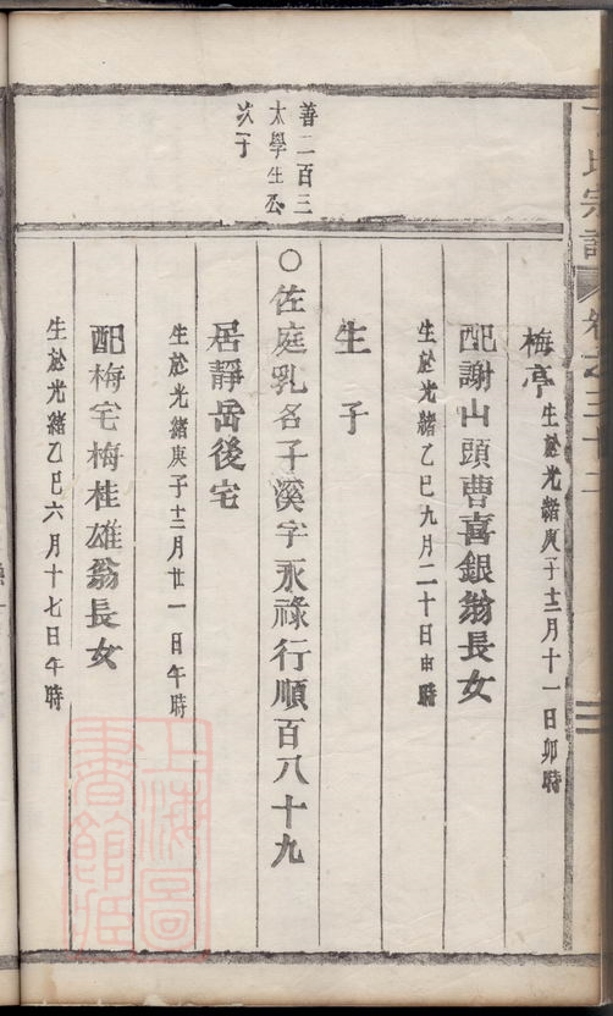 氏宗譜 卷之三十二
三
梅亭 生於光緒庚子十二月十一日卯時
配謝山頭曹喜銀翁長女
生於光緒乙巳九月二十日申時
生 子
善二百三
太學生公
次子
○佐庭乳名子溪字永祿行順百八十九
居靜岳後宅
生於光緒庚子十二月廿一日午時
配梅宅梅桂雄翁長女
生於光緒乙巳六月十七日午時
上海圖
書館